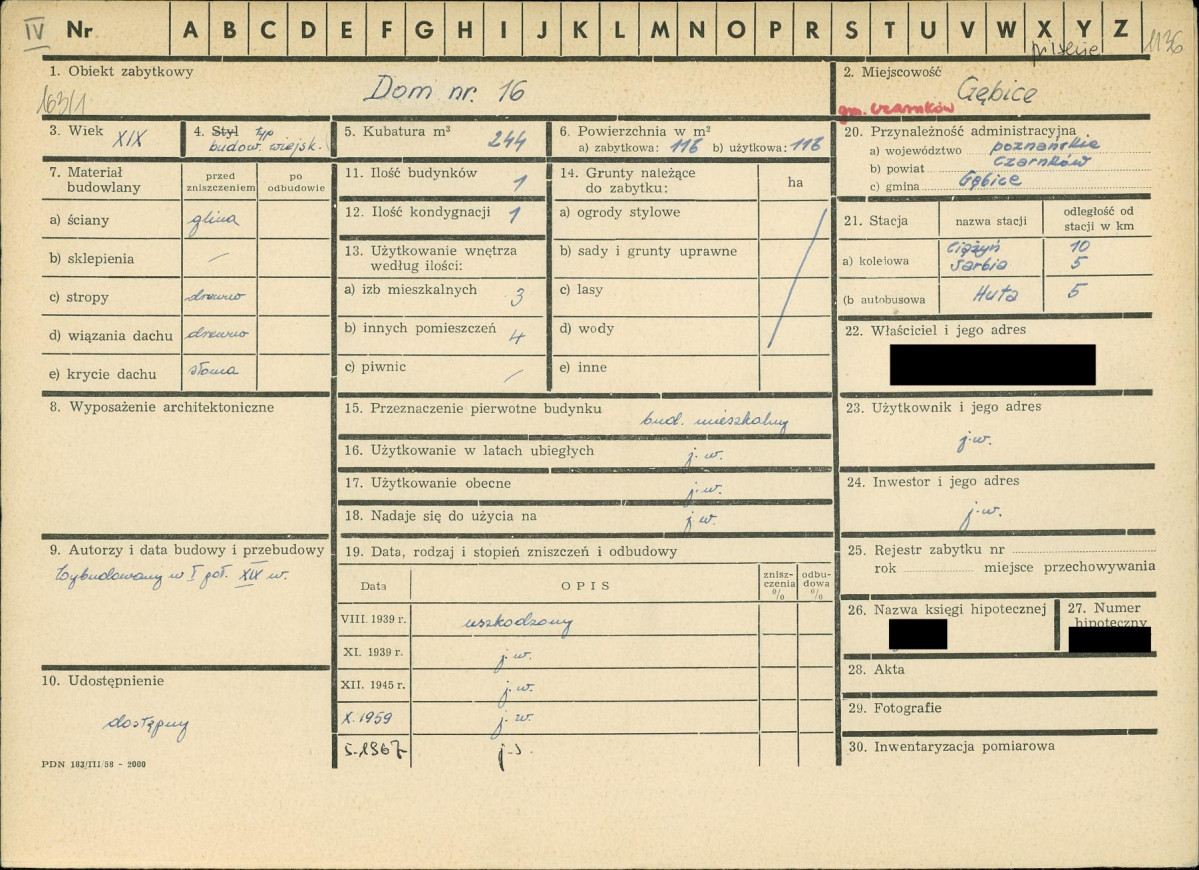 IV Nr A B C D E F G H I J K L M N O P R S T U V W X Y Z 1136
1. Obiekt zabytkowy
1631/1
Dom nr. 16
2. Miejscowość
Gębice
gm. Czarnków
3. Wiek
XIX
4. Styl typ
budow. wiejsk.
5. Kubatura m³
244
6. Powierzchnia w m²
a) zabytkowa: 116 b) użytkowa: 116
7. Materiał
budowlany
przed
zniszczeniem
po
odbudowie
a) ściany glina
b) sklepienia —
c) stropy drewno
d) wiązania dachu drewno
e) krycie dachu słoma
8. Wyposażenie architektoniczne
9. Autorzy i data budowy i przebudowy
Wybudowany w I poł. XIX w.
10. Udostępnienie
dostępny
PDN 183/III/58 - 2000
11. Ilość budynków
1
12. Ilość kondygnacji 1
13. Użytkowanie wnętrza
według ilości:
a) izb mieszkalnych 3
b) innych pomieszczeń 4
c) piwnic /
14. Grunty należące
do zabytku:
ha
a) ogrody stylowe
b) sady i grunty uprawne
c) lasy
d) wody
e) inne
15. Przeznaczenie pierwotne budynku
bud. mieszkalny
16. Użytkowanie w latach ubiegłych j.w.
17. Użytkowanie obecne j.w.
18. Nadaje się do użycia na j.w.
19. Data, rodzaj i stopień zniszczeń i odbudowy
Data OPIS
znisz-
czenia
%
odbu-
dowa
%
VIII. 1939 r. uszkodzony
XI. 1939 r. j.w.
XII. 1945 r. j.w.
X. 1959 j.w.
5.1967 j.w.
20. Przynależność administracyjna
a) województwo poznańskie
b) powiat Czarnków
c) gmina Gębice
21. Stacja
nazwa stacji
odległość od
stacji w km
a) kolejowa
Ciążyń 10
Sarbia 5
(b autobusowa Huta 5
22. Właściciel i jego adres
23. Użytkownik i jego adres
j.w.
24. Inwestor i jego adres
j.w.
25. Rejestr zabytku nr
rok miejsce przechowywania
26. Nazwa księgi hipotecznej
27. Numer
hipoteczny
28. Akta
29. Fotografie
30. Inwentaryzacja pomiarowa